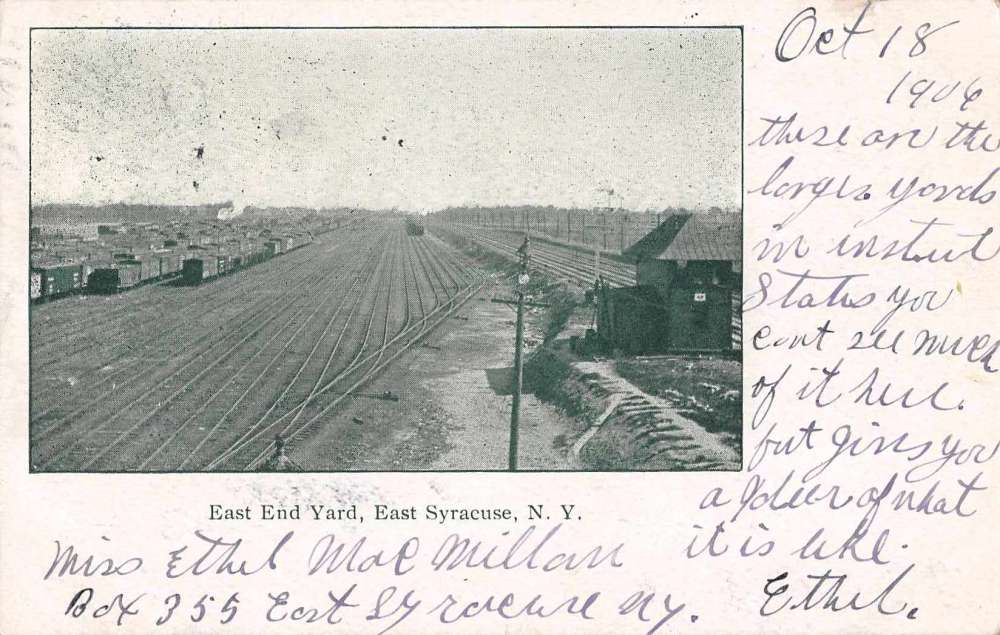 Oct 18
1906
these are the
larges yards
in instut
States you
cant see much
of it here.
but gives you
a Ideer of what
it is like.
Ethel.
East End Yard, East Syracuse, N. Y.
Miss Ethel MacMillan
Box 355 East Syracuse NY.